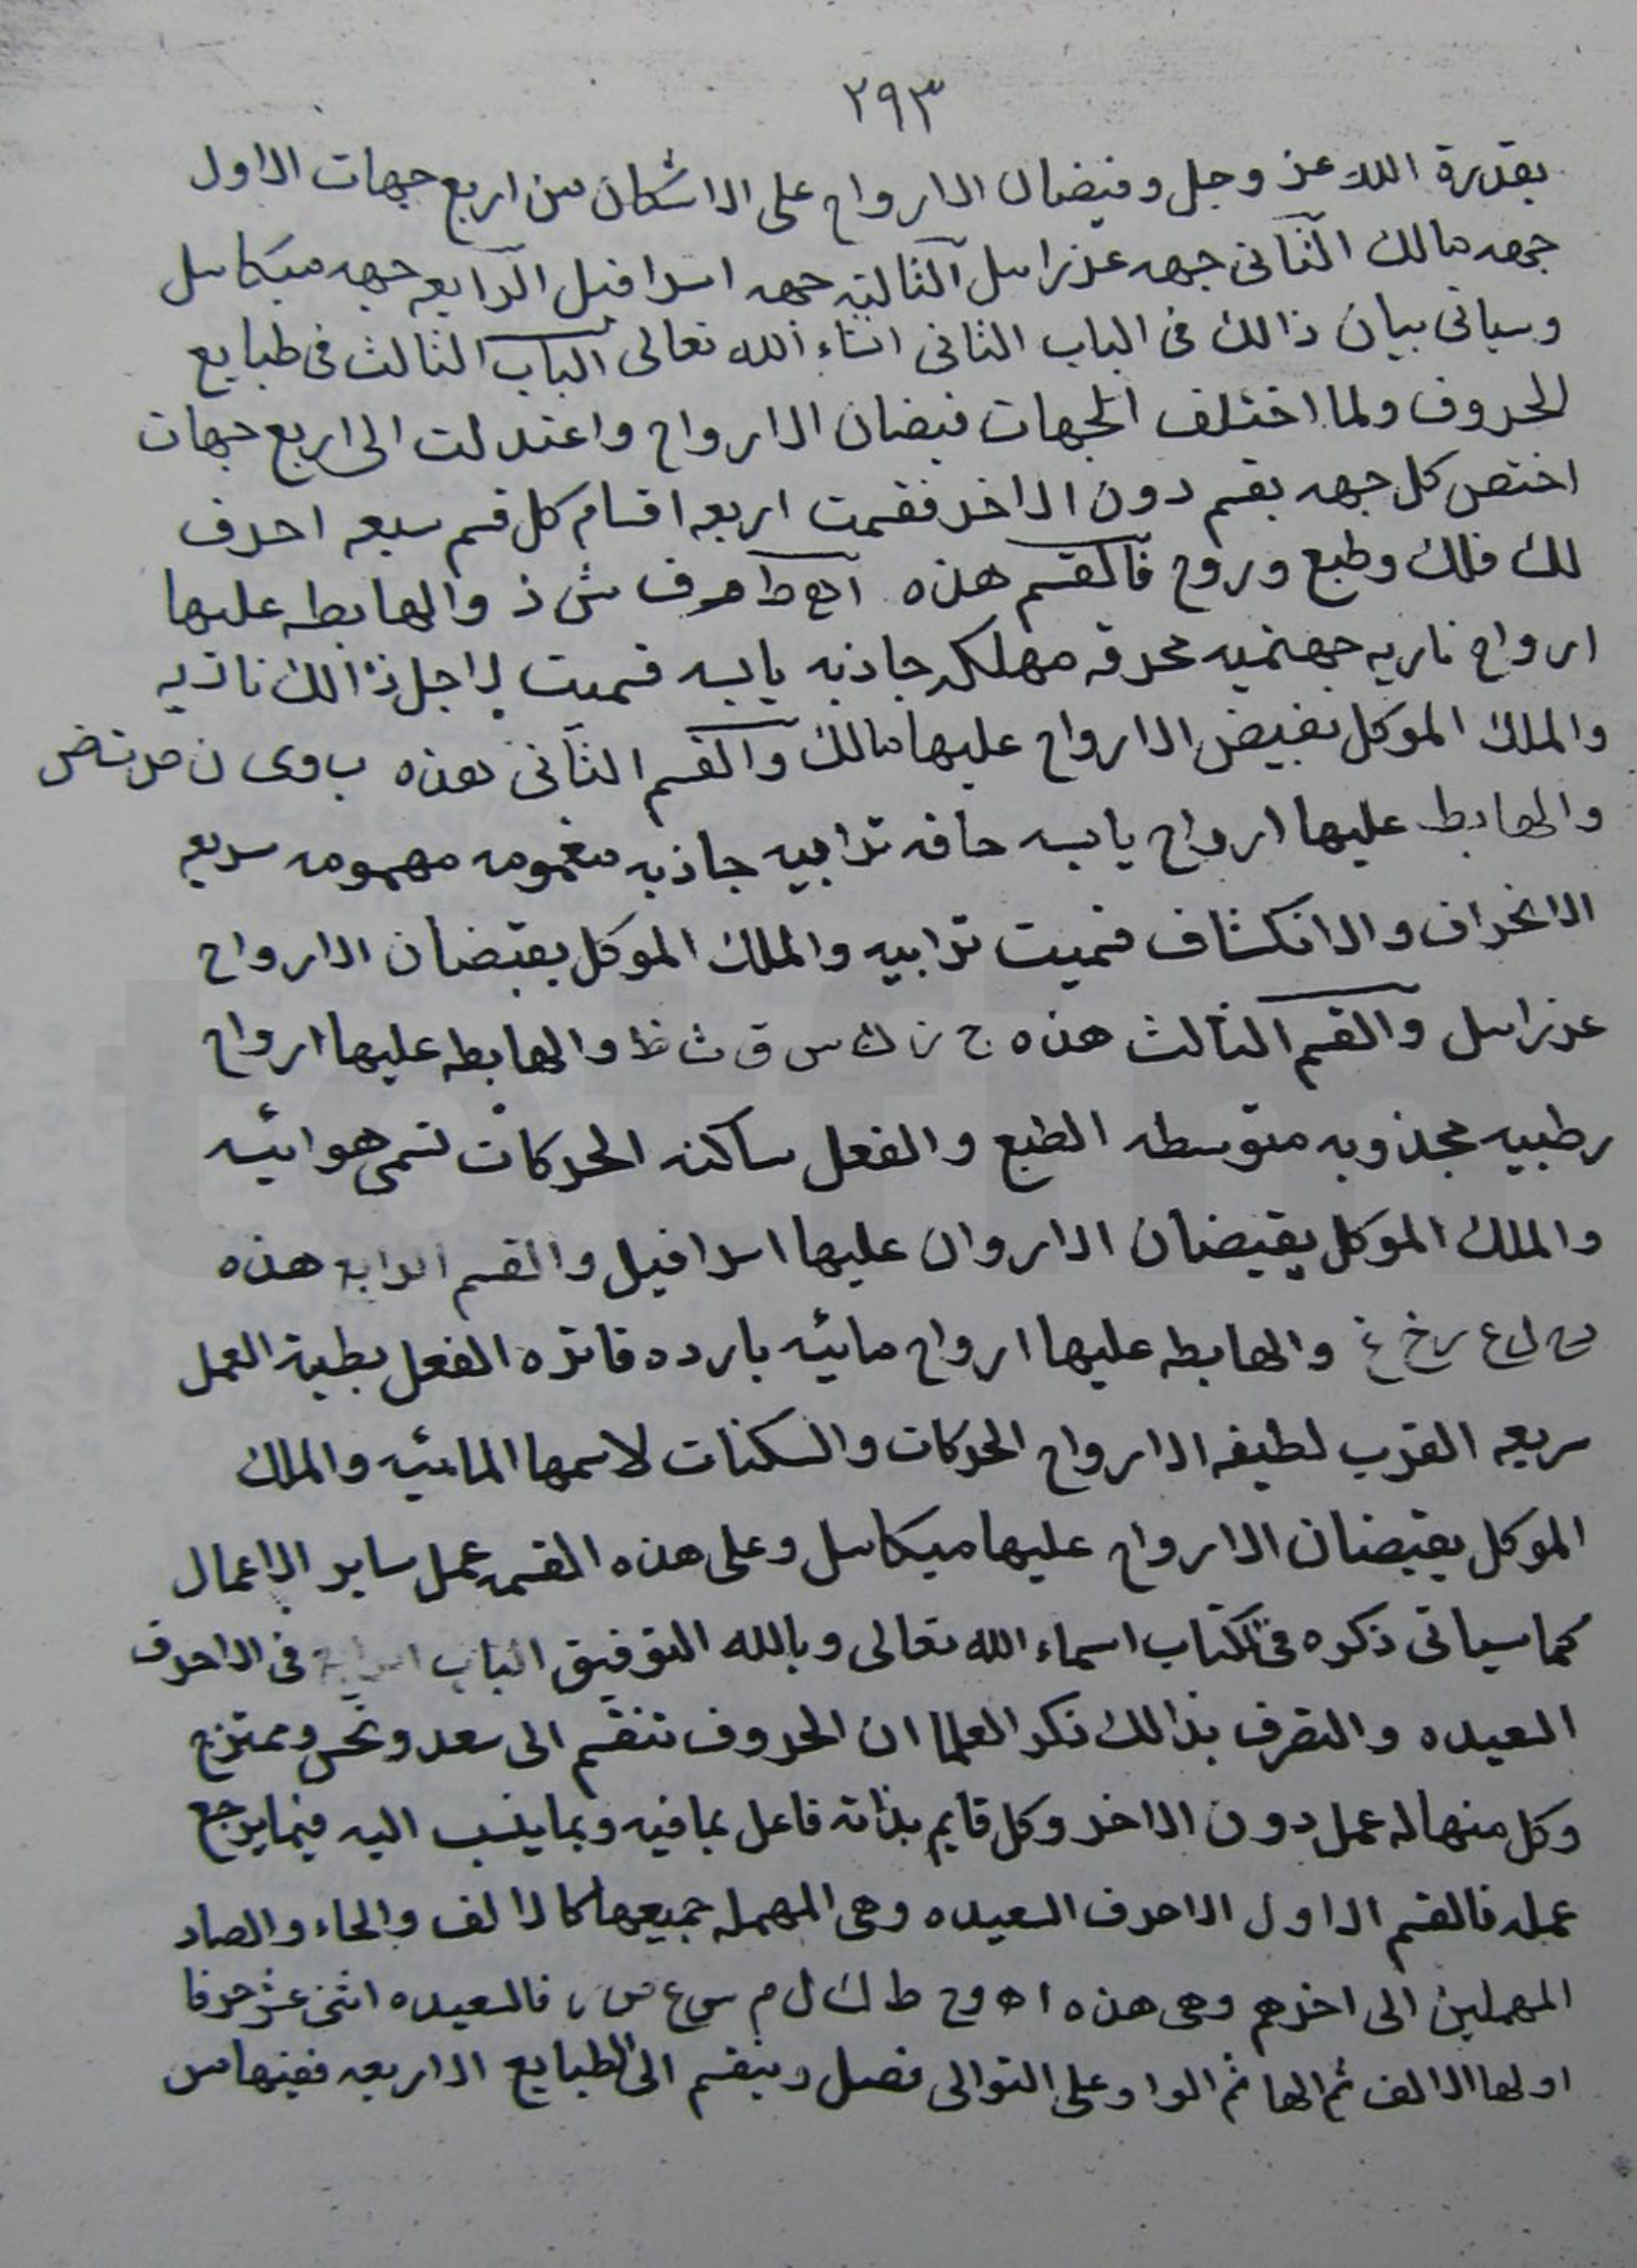 ٢٩٣
بقدرة الله عز وجل وفيضان الارواح على الاشكال من اربع جهات الاول
جهه مالك الثانى جهه عزرايىل الثالثه جهه اسرافيل الرابعه جهه ميكاىىل
وسياتى بيان ذالك فى الباب الثانى انشاء الله تعالى الباب الثالث فى طبايع
الحروف ولما اختلف الجهات فيضان الارواح واعتدلت الى اربع جهات
اختص كل جهه بقسم دون الاخر فقسمت اربعه اقسام كل قسم سبعه احرف
لك فلك وطبع وروح فالقسم هذه ا ه ط م ف ش ذ والهابطه عليها
ارواح ناريه جهنميه محرقه مهلكه جاذبه يابسه فسميت لاجل ذالك ناريه
والملك الموكل بفيض الارواح عليها مالك والقسم الثانى هذه ب و ى ن ص ت ض
والهابط عليها ارواح يابسه حافه ترابيه جاذبه مغمومه مهمومه سريعه
الانحراف والانكشاف فسميت ترابيه والملك الموكل بفيضان الارواح
عزراىىل والقسم الثالث هذه ج ز ك س ق ث ظ والهابطه عليها ارواح
رطبيه مجذوبه متوسطه الطبع والفعل ساكنه الحركات تسمى هوائيه
والملك الموكل بفيضان الاروان عليها اسرافيل والقسم الرابع هذه
د ح ل ع ر خ غ والهابطه عليها ارواح مائيه بارده فاتره الفعل بطية العمل
سريعه القرب لطيفه الارواح الحركات والسكنات لاسمها المائيه والملك
الموكل بفيضان الارواح عليها ميكاىىل وعلى هذه القسمه عمل ساير الاعمال
كما سياتى ذكره فى كتاب اسماء الله تعالى وبالله التوفيق الباب الرابع فى الاحرف
السعيده والتصرف بذالك ذكر العلما ان الحروف تنقسم الى سعد ونحس وممتزج
وكل منها له عمل دون الاخر وكل قايم بذاته فاعل بما فيه وبما ينسب اليه فيما يرجع
عمله فالقسم الاول الاحرف السعيده وهى المهمله جميعها كالالف والحاء والصاد
المهملين الى اخرهم وهى هذه ا ه و ح ط ك ل م س ع ص ر فالسعيده اثنى عشر حرفا
اولها الالف ثم الها ثم الواو على التوالى فصل وينقسم الى الطبايع الاربعه فمنها من